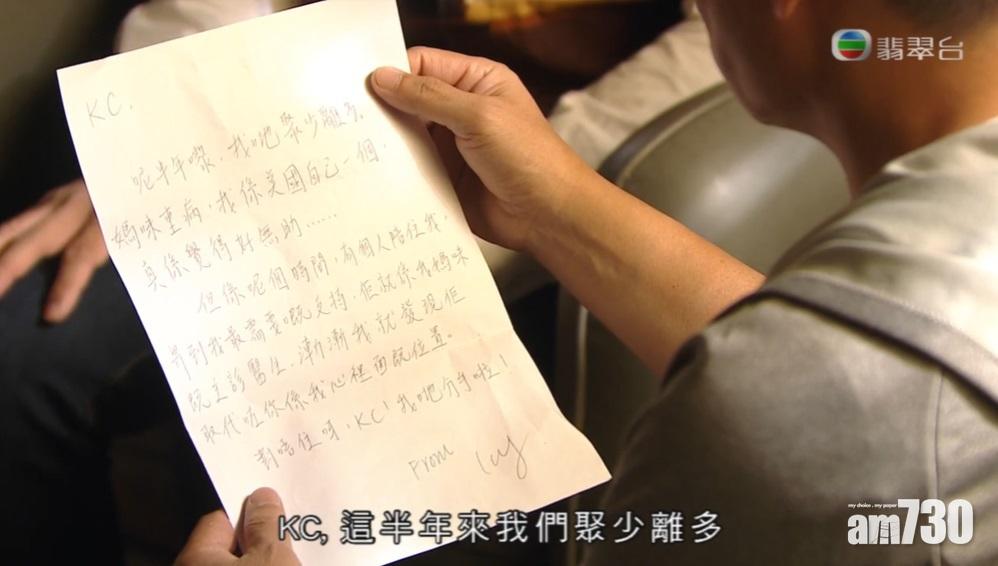 翡翠台
KC,
呢半年嚟，我哋聚少離多，
媽咪重病，我係美國自己一個，
真係覺得好無助……
但係呢個時間，有個人陪住我，
畀到我最需要既支持，佢就係我媽咪
既主診醫生，漸漸我就發現佢
取代咗你係我心裡面既位置。
對唔住呀，KC！我哋分手啦！
From Icy
KC, 這半年來我們聚少離多
my choice . my paper
am730